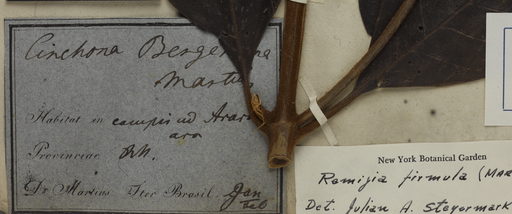 Cinchona Bergeniana
Martius
Habitat in campis ad Arara
ara
Provinciae
Dr. Martius Iter Brasil. Jan
Feb
New York Botanical Garden
Remijia firmula (MAR
Det. Julian A. Steyermark